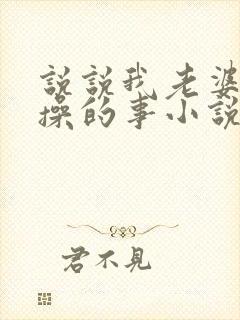 説說我老婆
操的事小說
君不見